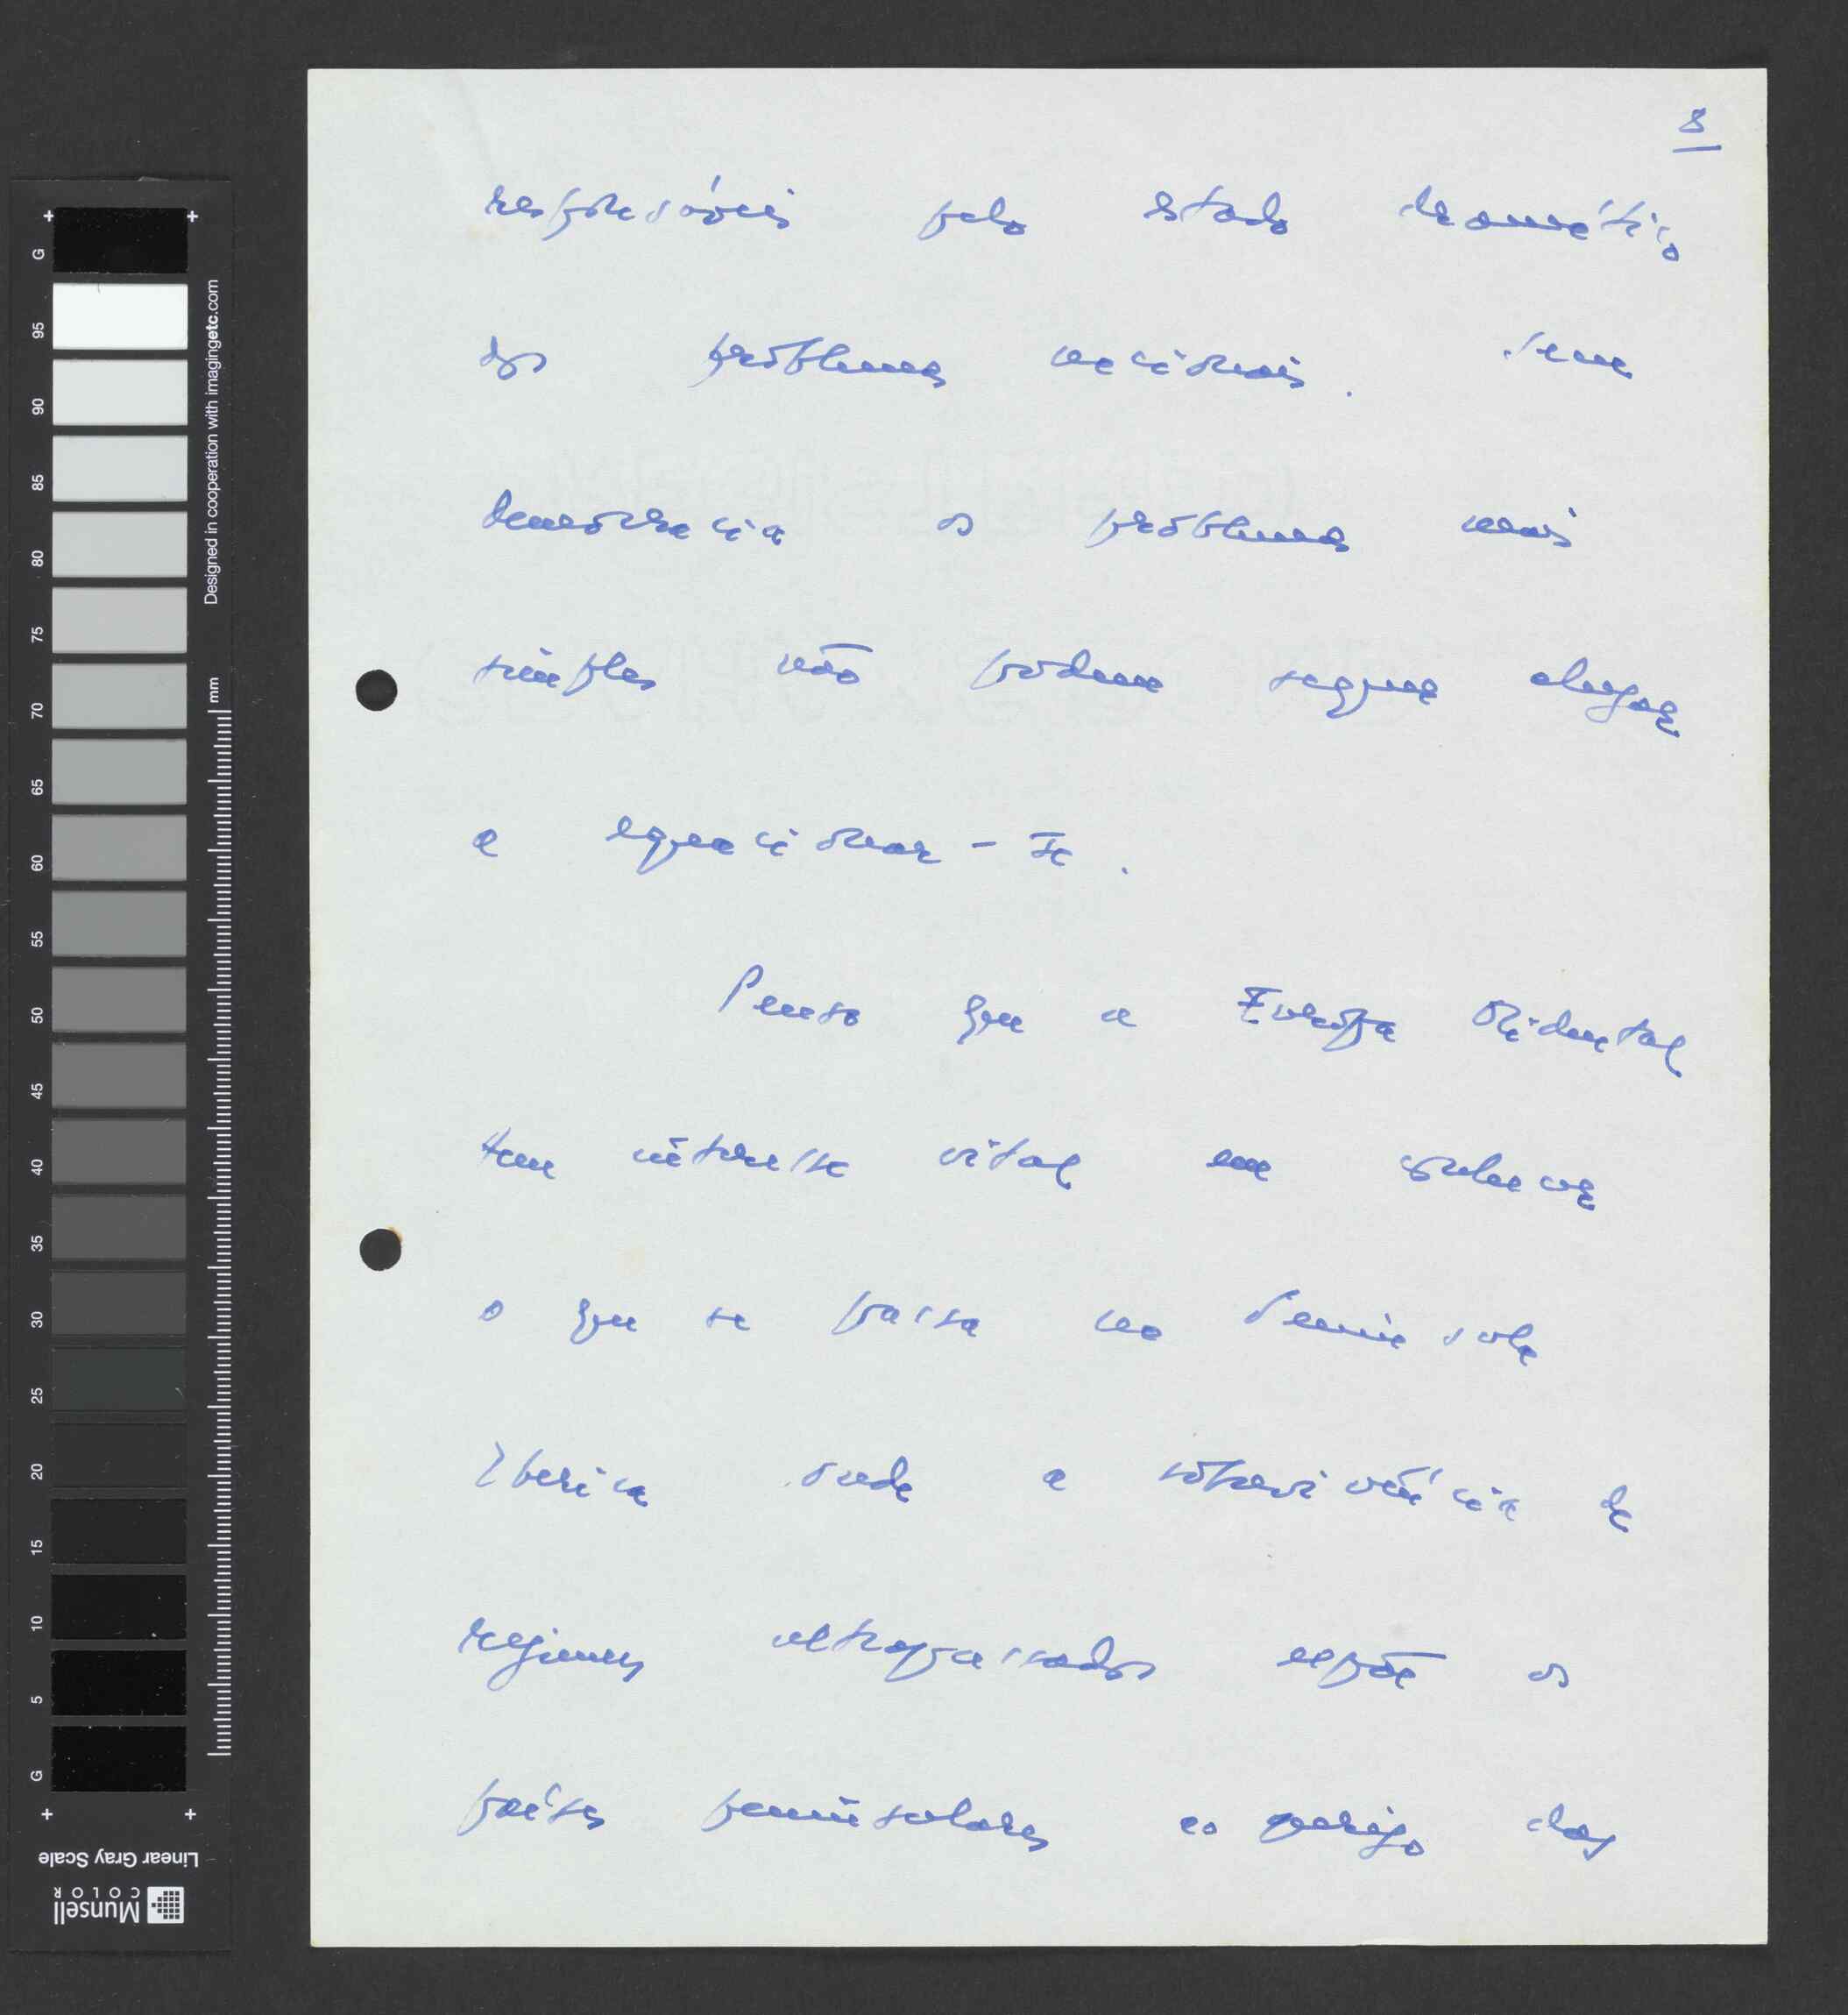 8
responsáveis pelo estado dramático
dos problemas nacionais. Sem
democracia os problemas mais
simples não podem sequer chegar
a equacionar-se.
Penso que a Europa Ocidental
tem interesse vital em conhecer
o que se passa na Península
Iberica onde a sobrevivência de
regimes ultrapassados expõe os
países peninsulares ao perigo das
G
95
90
85
80
75
70
65
60
55
50
45
40
35
30
25
20
15
10
5
G
mm
Designed in cooperation with imagingetc.com
Linear Gray Scale
Munsell
COLOR